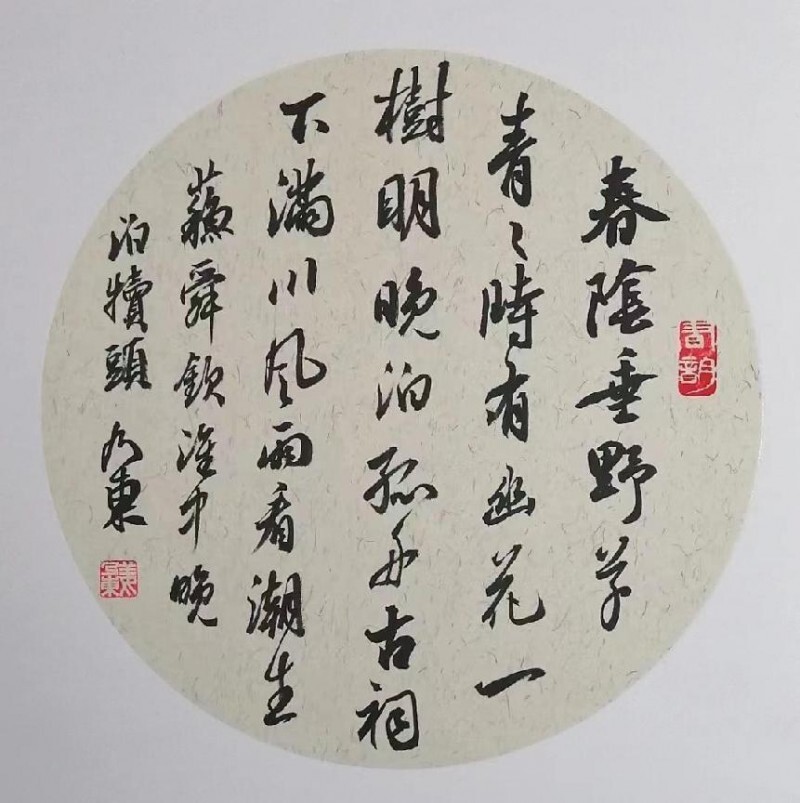 春陰垂野草
青〻時有幽花一
樹明晚泊孤舟古祠
下滿川風雨看潮生
蘇舜欽淮中晚
泊犢頭 乃東